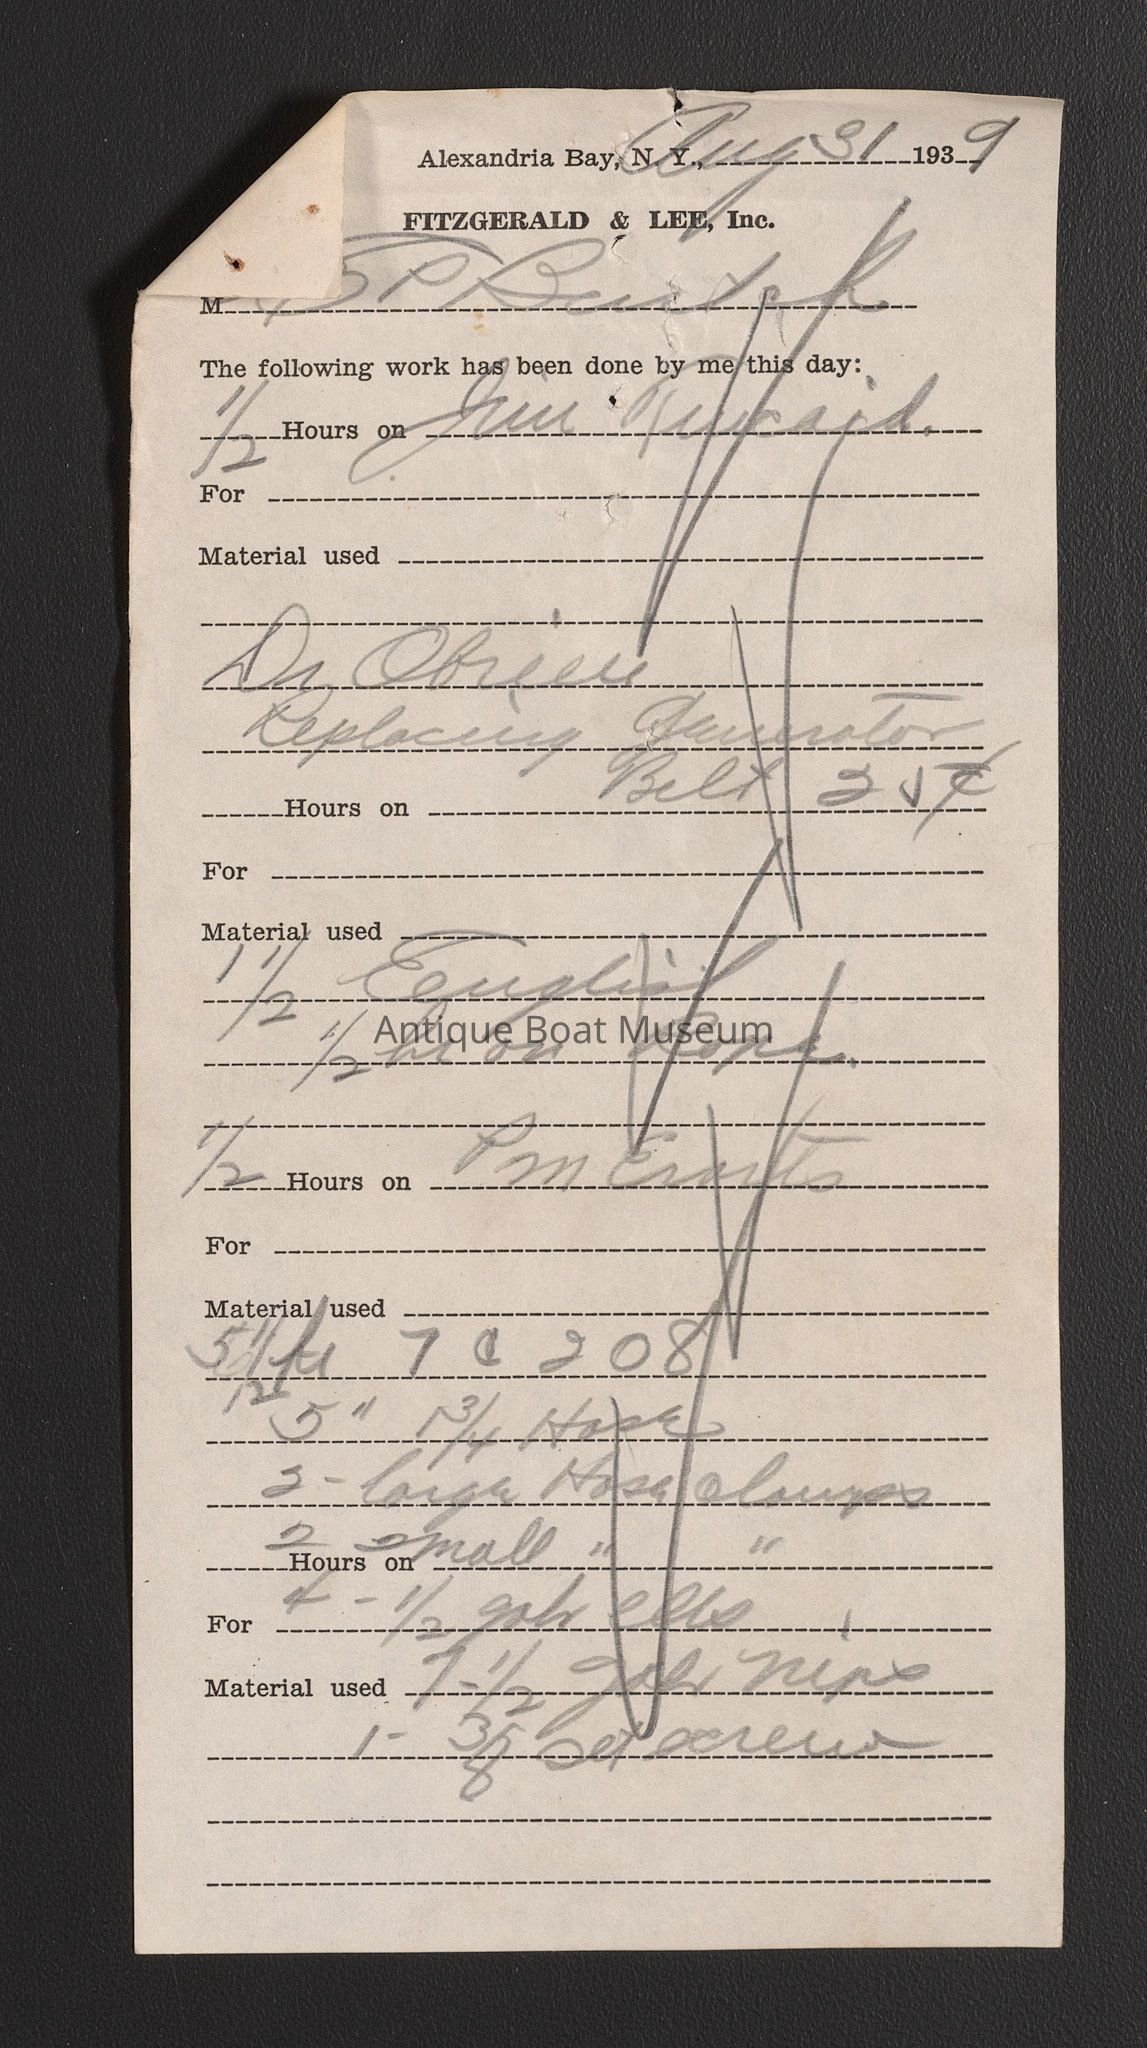 Alexandria Bay, N. Y., Aug 31 1939
FITZGERALD & LEE, Inc.
M
The following work has been done by me this day:
1/2 Hours on Jim Kincaid.
For
Material used
Dr Obrien
Replacing Generator
Belt 25¢
Hours on
For
Material used
1 1/2 English
1/2 hr on
Antique Boat Museum
1/2 Hours on P M Evarts
For
Material used
7 C 208
5" 1 3/4 Hose
2 - large Hose clamps
2 small " "
Hours on
4 - 1/2 galv ells
For
Material used 7 - 1/2 galv nips
1 - 3/8 set screw